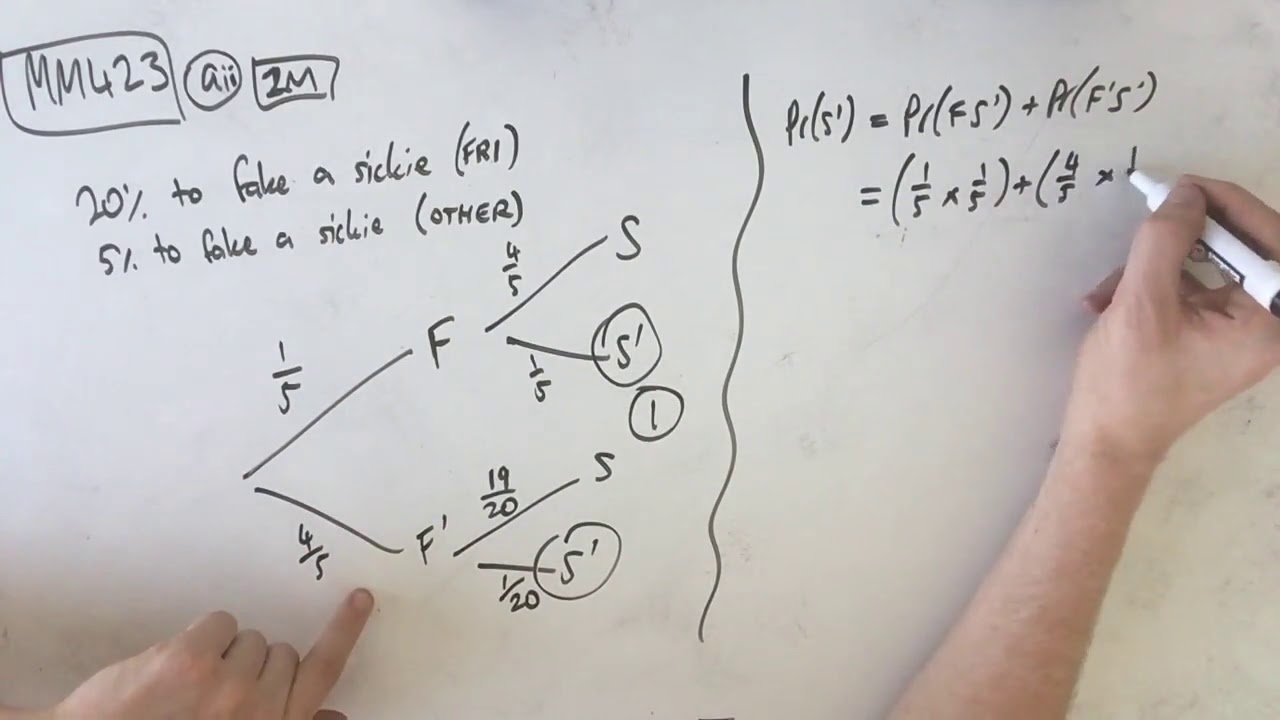 MM423 aii 2M
20% to fake a sickie (FRI)
5% to fake a sickie (OTHER)
4/5 S
1/5 F
1/5 S'
1
19/20 S
4/5 F'
1/20 S'
Pr(S') = Pr(FS') + Pr(F'S')
= (1/5 × 1/5) + (4/5 × 1